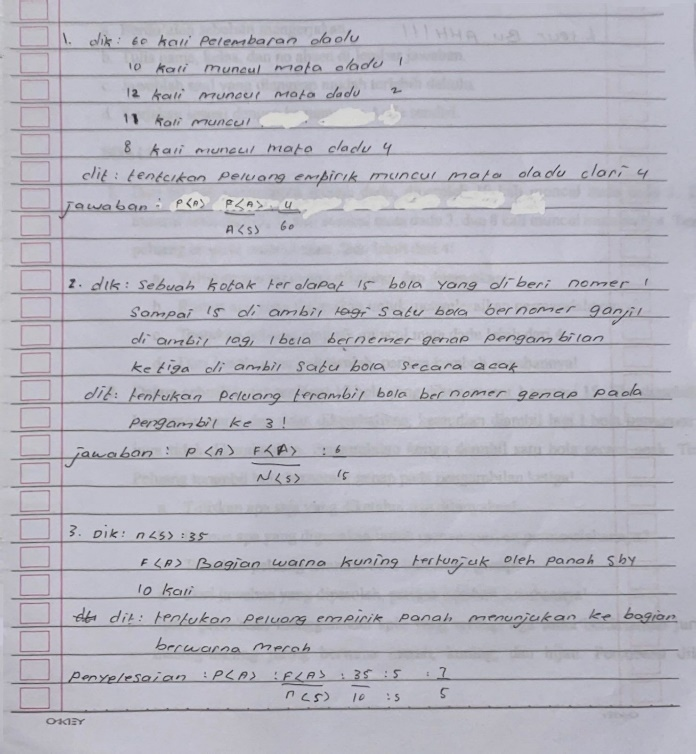 1. dik: 60 kali Pelembaran dadu
10 kali muncul mata dadu 1
12 kali muncul mata dadu 2
11 kali muncul
8 kali muncul mata dadu 4
dit: tentukan Peluang empirik muncul mata dadu dari 4
jawaban : P<A> F<A> : 4
A<S> 60
2. dik: Sebuah kotak terdapat 15 bola yang diberi nomer 1
Sampai 15 di ambil lagi satu bola bernomer ganjil
di ambil lagi 1 bola bernemer genap pengambilan
ketiga di ambil satu bola secara acak
dit: tentukan Peluang terambil bola bernomer genap pada
Pengambil ke 3!
jawaban : P<A> F<A> : 6
N<S> 15
3. Dik: n<s> : 35
F<A> Bagian warna kuning tertunjuk oleh panah sby
10 kali
dit: tentukan peluang empirik panah menunjukan ke bagian
berwarna merah
Penyelesaian : P<A> : F<A> : 35 : 5 : 7
n<S> 10 : 5 5
OKEY